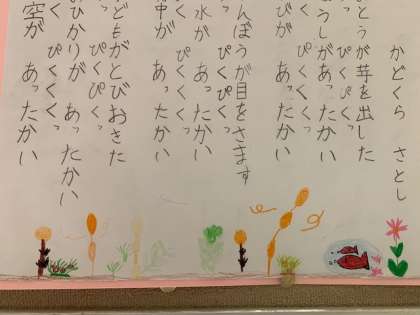 かどくら さとし
とうが芽を出した
ぴくぴくっ
うしが あったかい
ぴくくくっ
びが あったかい
んぼうが目をさます
ぴくぴくっ
水が あったかい
ぴくくくっ
中が あったかい
どもがとびおきた
ぴくぴくっ
ひかりが あったかい
ぴくくくっ
空が あったかい